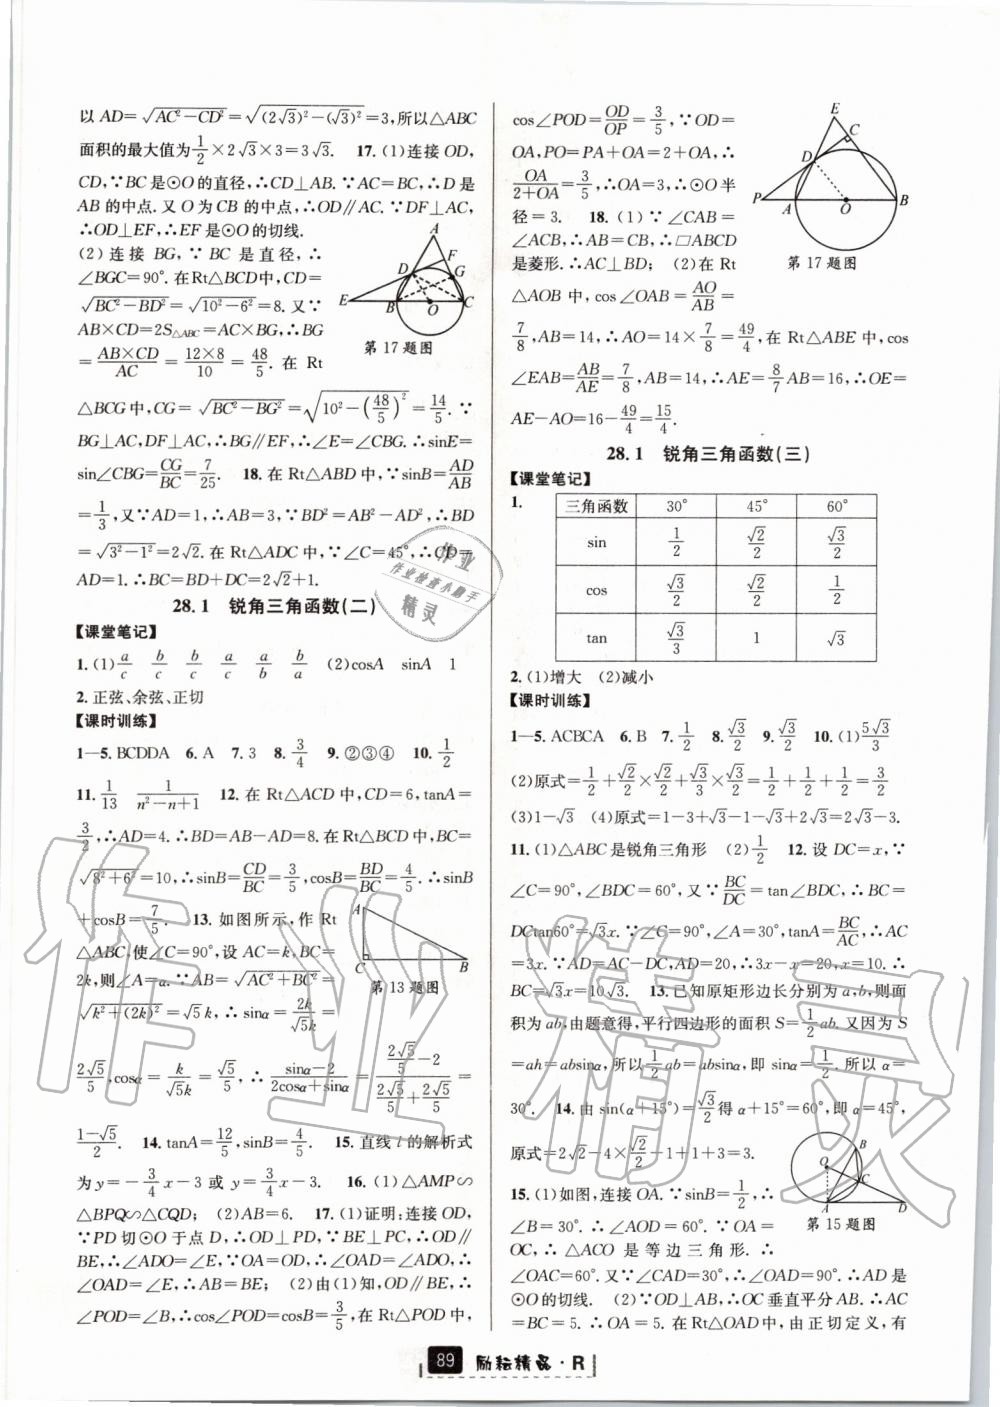 以 AD=√(AC²-CD²)=√((2√3)²-(√3)²)=3,所以△ABC
面积的最大值为1/2×2√3×3=3√3. 17.(1)连接 OD,
CD,∵BC 是⊙O 的直径,∴CD⊥AB.∵AC=BC,∴D 是
AB 的中点.又 O 为 CB 的中点,∴OD∥AC.∵DF⊥AC,
∴OD⊥EF,∴EF 是⊙O 的切线.
(2)连接 BG,∵BC 是直径,∴
∠BGC=90°.在 Rt△BCD 中,CD=
√(BC²-BD²)=√(10²-6²)=8.又∵
AB×CD=2S△ABC=AC×BG,∴BG
=AB×CD/AC=12×8/10=48/5.在 Rt
第 17 题图
△BCG 中,CG=√(BC²-BG²)=√(10²-(48/5)²)=14/5.∵
BG⊥AC,DF⊥AC,∴BG∥EF,∴∠E=∠CBG.∴sinE=
sin∠CBG=CG/BC=7/25. 18.在 Rt△ABD 中,∵sinB=AD/AB
=1/3,又∵AD=1,∴AB=3,∵BD²=AB²-AD²,∴BD
=√(3²-1²)=2√2.在 Rt△ADC 中,∵∠C=45°,∴CD=
AD=1.∴BC=BD+DC=2√2+1.
28.1 锐角三角函数(二)
【课堂笔记】
1.(1)a/c b/c b/c a/c a/b b/a (2)cosA sinA 1
2.正弦、余弦、正切
【课时训练】
1—5.BCDDA 6.A 7.3 8.3/4 9.②③④ 10.1/2
11.1/13 1/(n²-n+1) 12.在 Rt△ACD 中,CD=6,tanA=
3/2,∴AD=4.∴BD=AB-AD=8.在 Rt△BCD 中,BC=
√(8²+6²)=10,∴sinB=CD/BC=3/5,cosB=BD/BC=4/5.∴sinB
+cosB=7/5. 13.如图所示,作 Rt
△ABC,使∠C=90°,设 AC=k,BC=
2k,则∠A=α.∵AB=√(AC²+BC²)=
√(k²+(2k)²)=√5k,∴sinα=2k/√5k=
第 13 题图
2√5/5,cosα=k/√5k=√5/5,∴(sinα-2)/(2cosα+sinα)=(2√5/5-2)/(2√5/5+2√5/5)=
(1-√5)/2. 14.tanA=12/5,sinB=4/5. 15.直线 l 的解析式
为 y=-3/4x-3 或 y=3/4x-3. 16.(1)△AMP∽
△BPQ∽△CQD; (2)AB=6. 17.(1)证明:连接 OD,
∵PD 切⊙O 于点 D,∴OD⊥PD,∵BE⊥PC,∴OD∥
BE,∴∠ADO=∠E,∵OA=OD,∴∠OAD=∠ADO,∴
∠OAD=∠E,∴AB=BE; (2)由(1)知,OD∥BE,∴
∠POD=∠B,∴cos∠POD=cosB=3/5,在 Rt△POD 中,
cos∠POD=OD/OP=3/5,∵OD=
OA,PO=PA+OA=2+OA,∴
OA/(2+OA)=3/5,∴OA=3,∴⊙O 半
径=3. 18.(1)∵∠CAB=
∠ACB,∴AB=CB,∴▱ABCD
是菱形.∴AC⊥BD; (2)在 Rt
第 17 题图
△AOB 中,cos∠OAB=AO/AB=
7/8,AB=14,∴AO=14×7/8=49/4,在 Rt△ABE 中,cos
∠EAB=AB/AE=7/8,AB=14,∴AE=8/7AB=16,∴OE=
AE-AO=16-49/4=15/4.
28.1 锐角三角函数(三)
【课堂笔记】
1. 三角函数 30° 45° 60°
sin 1/2 √2/2 √3/2
cos √3/2 √2/2 1/2
tan √3/3 1 √3
2.(1)增大 (2)减小
【课时训练】
1—5.ACBCA 6.B 7.1/2 8.√3/2 9.√3/2 10.(1)5√3/3
(2)原式=1/2+√2/2×√2/2+√3/3×√3/2=1/2+1/2+1/2=3/2
(3)1-√3 (4)原式=1-3+√3-1-√3+2√3=2√3-3.
11.(1)△ABC 是锐角三角形 (2)1/2 12.设 DC=x,∵
∠C=90°,∠BDC=60°,又∵BC/DC=tan∠BDC,∴BC=
DCtan60°=√3x.∵∠C=90°,∠A=30°,tanA=BC/AC,∴AC
=3x.∵AD=AC-DC,AD=20,∴3x-x=20,x=10.∴
BC=√3x=10√3. 13.已知原矩形边长分别为 a,b,则面
积为 ab,由题意得,平行四边形的面积 S=1/2ab.又因为 S
=ah=absinα,所以1/2ab=absinα,即 sinα=1/2.所以 α=
30°. 14.由 sin(α+15°)=√3/2得 α+15°=60°,即 α=45°,
原式=2√2-4×√2/2-1+1+3=3.
15.(1)如图,连接 OA.∵sinB=1/2,∴
∠B=30°.∴∠AOD=60°.∵OA=
第 15 题图
OC,∴△ACO 是等边三角形.∴
∠OAC=60°.又∵∠CAD=30°,∴∠OAD=90°.∴AD 是
⊙O 的切线. (2)∵OD⊥AB,∴OC 垂直平分 AB.∴AC
=BC=5.∴OA=5.在 Rt△OAD 中,由正切定义,有
89 励耘精品·R
作业
作业检查小助手
精灵
作业精灵